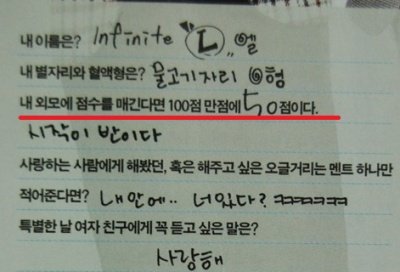 내 이름은? Infinite L.. 엘
내 별자리와 혈액형은? 물고기자리 O형
내 외모에 점수를 매긴다면 100점 만점에 50점이다.
시작이 반이다
사랑하는 사람에게 해봤던, 혹은 해주고 싶은 오글거리는 멘트 하나만
적어준다면? 내 안에.. 너있다? ㅋㅋㅋㅋㅋ
특별한 날 여자 친구에게 꼭 듣고 싶은 말은?
사랑해